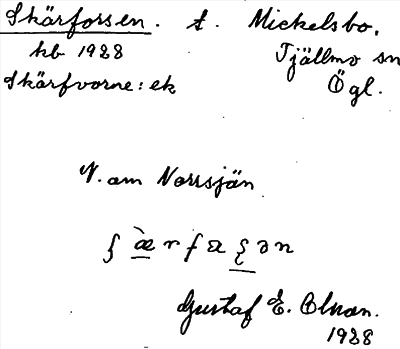 Skärforsen. t. Mickelsbo.
kb 1928 Tjällmo sn
Skärfvorne: ek Ögl.
N. om Norrsjön
Gustaf E. Olson.
1928